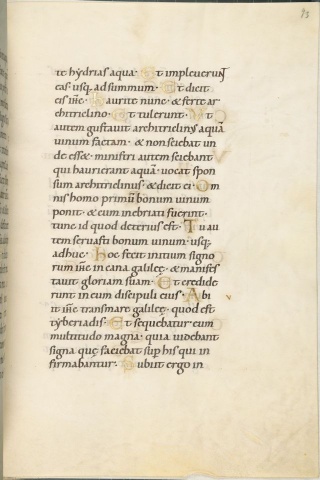 93
te hydrias aqua· Et impleverunt
eas usq; ad summum· Et dicit
eis ihc· Haurite nunc· & ferte ar
chitriclino· Et tulerunt· Ut
autem gustavit architriclinus aquā
uinum factam· & non sciebat un
de esset· ministri autem sciebant
qui haurierant aquā· vocat spon
sum architriclinus· & dicit ei· Om
nis homo primū bonum uinum
ponit· & cum inebriati fuerint·
tunc id quod deterius est· Tu au
tem servasti bonum uinum· usq;
adhuc· hoc fecit initium signo
rum ihc in cana galileę· & manifes
tavit gloriam suam· Et credide
runt in eum discipuli eius· Abi
it ihc trans mare galileę· quod est
tyberiadis· Et sequebatur eum
multitudo magna· quia uidebant
signa quę faciebat sup his qui in
firmabantur· Subiit ergo in